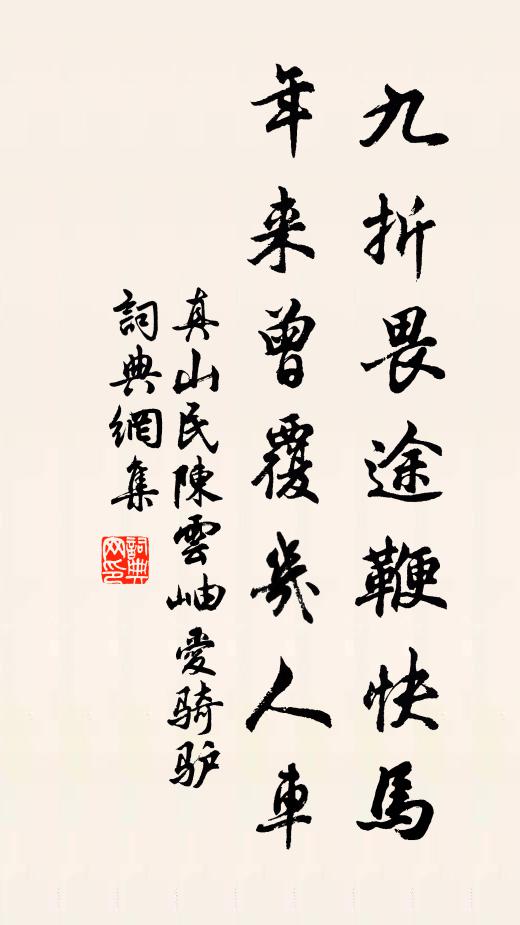 九折畏途鞭快馬
年来曾覆幾人車
真山民陳雲岫愛騎驴
詞典網集
詞典网印